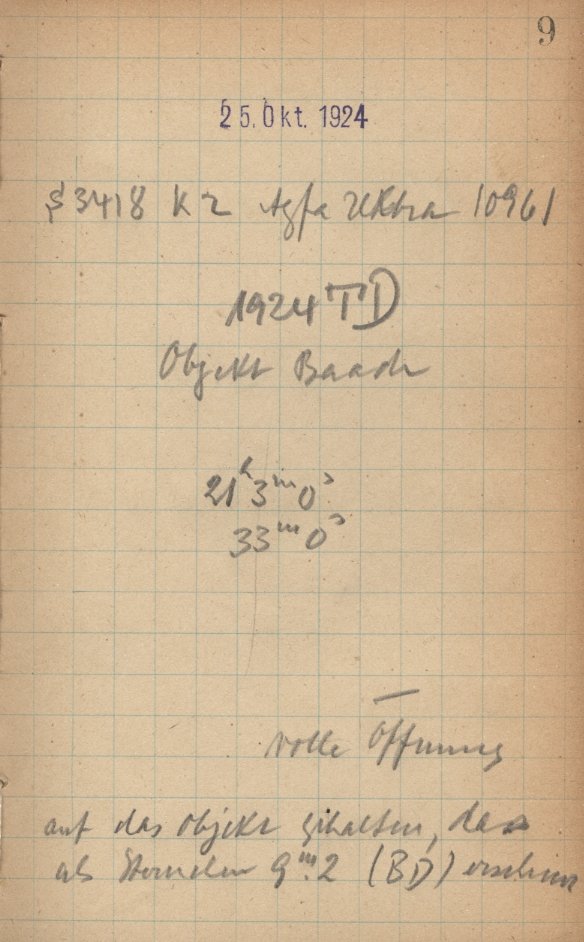 9
25. Okt. 1924
3418 K 2 Agfa Ultra 10961
1924 TD
Objekt Baade
21ʰ 3ᵐ 0ˢ
33ᵐ 0ˢ
Volle Öffnung
auf das Objekt gehalten, das
als Sternchen 9ᵐ.2 (BD) erscheint